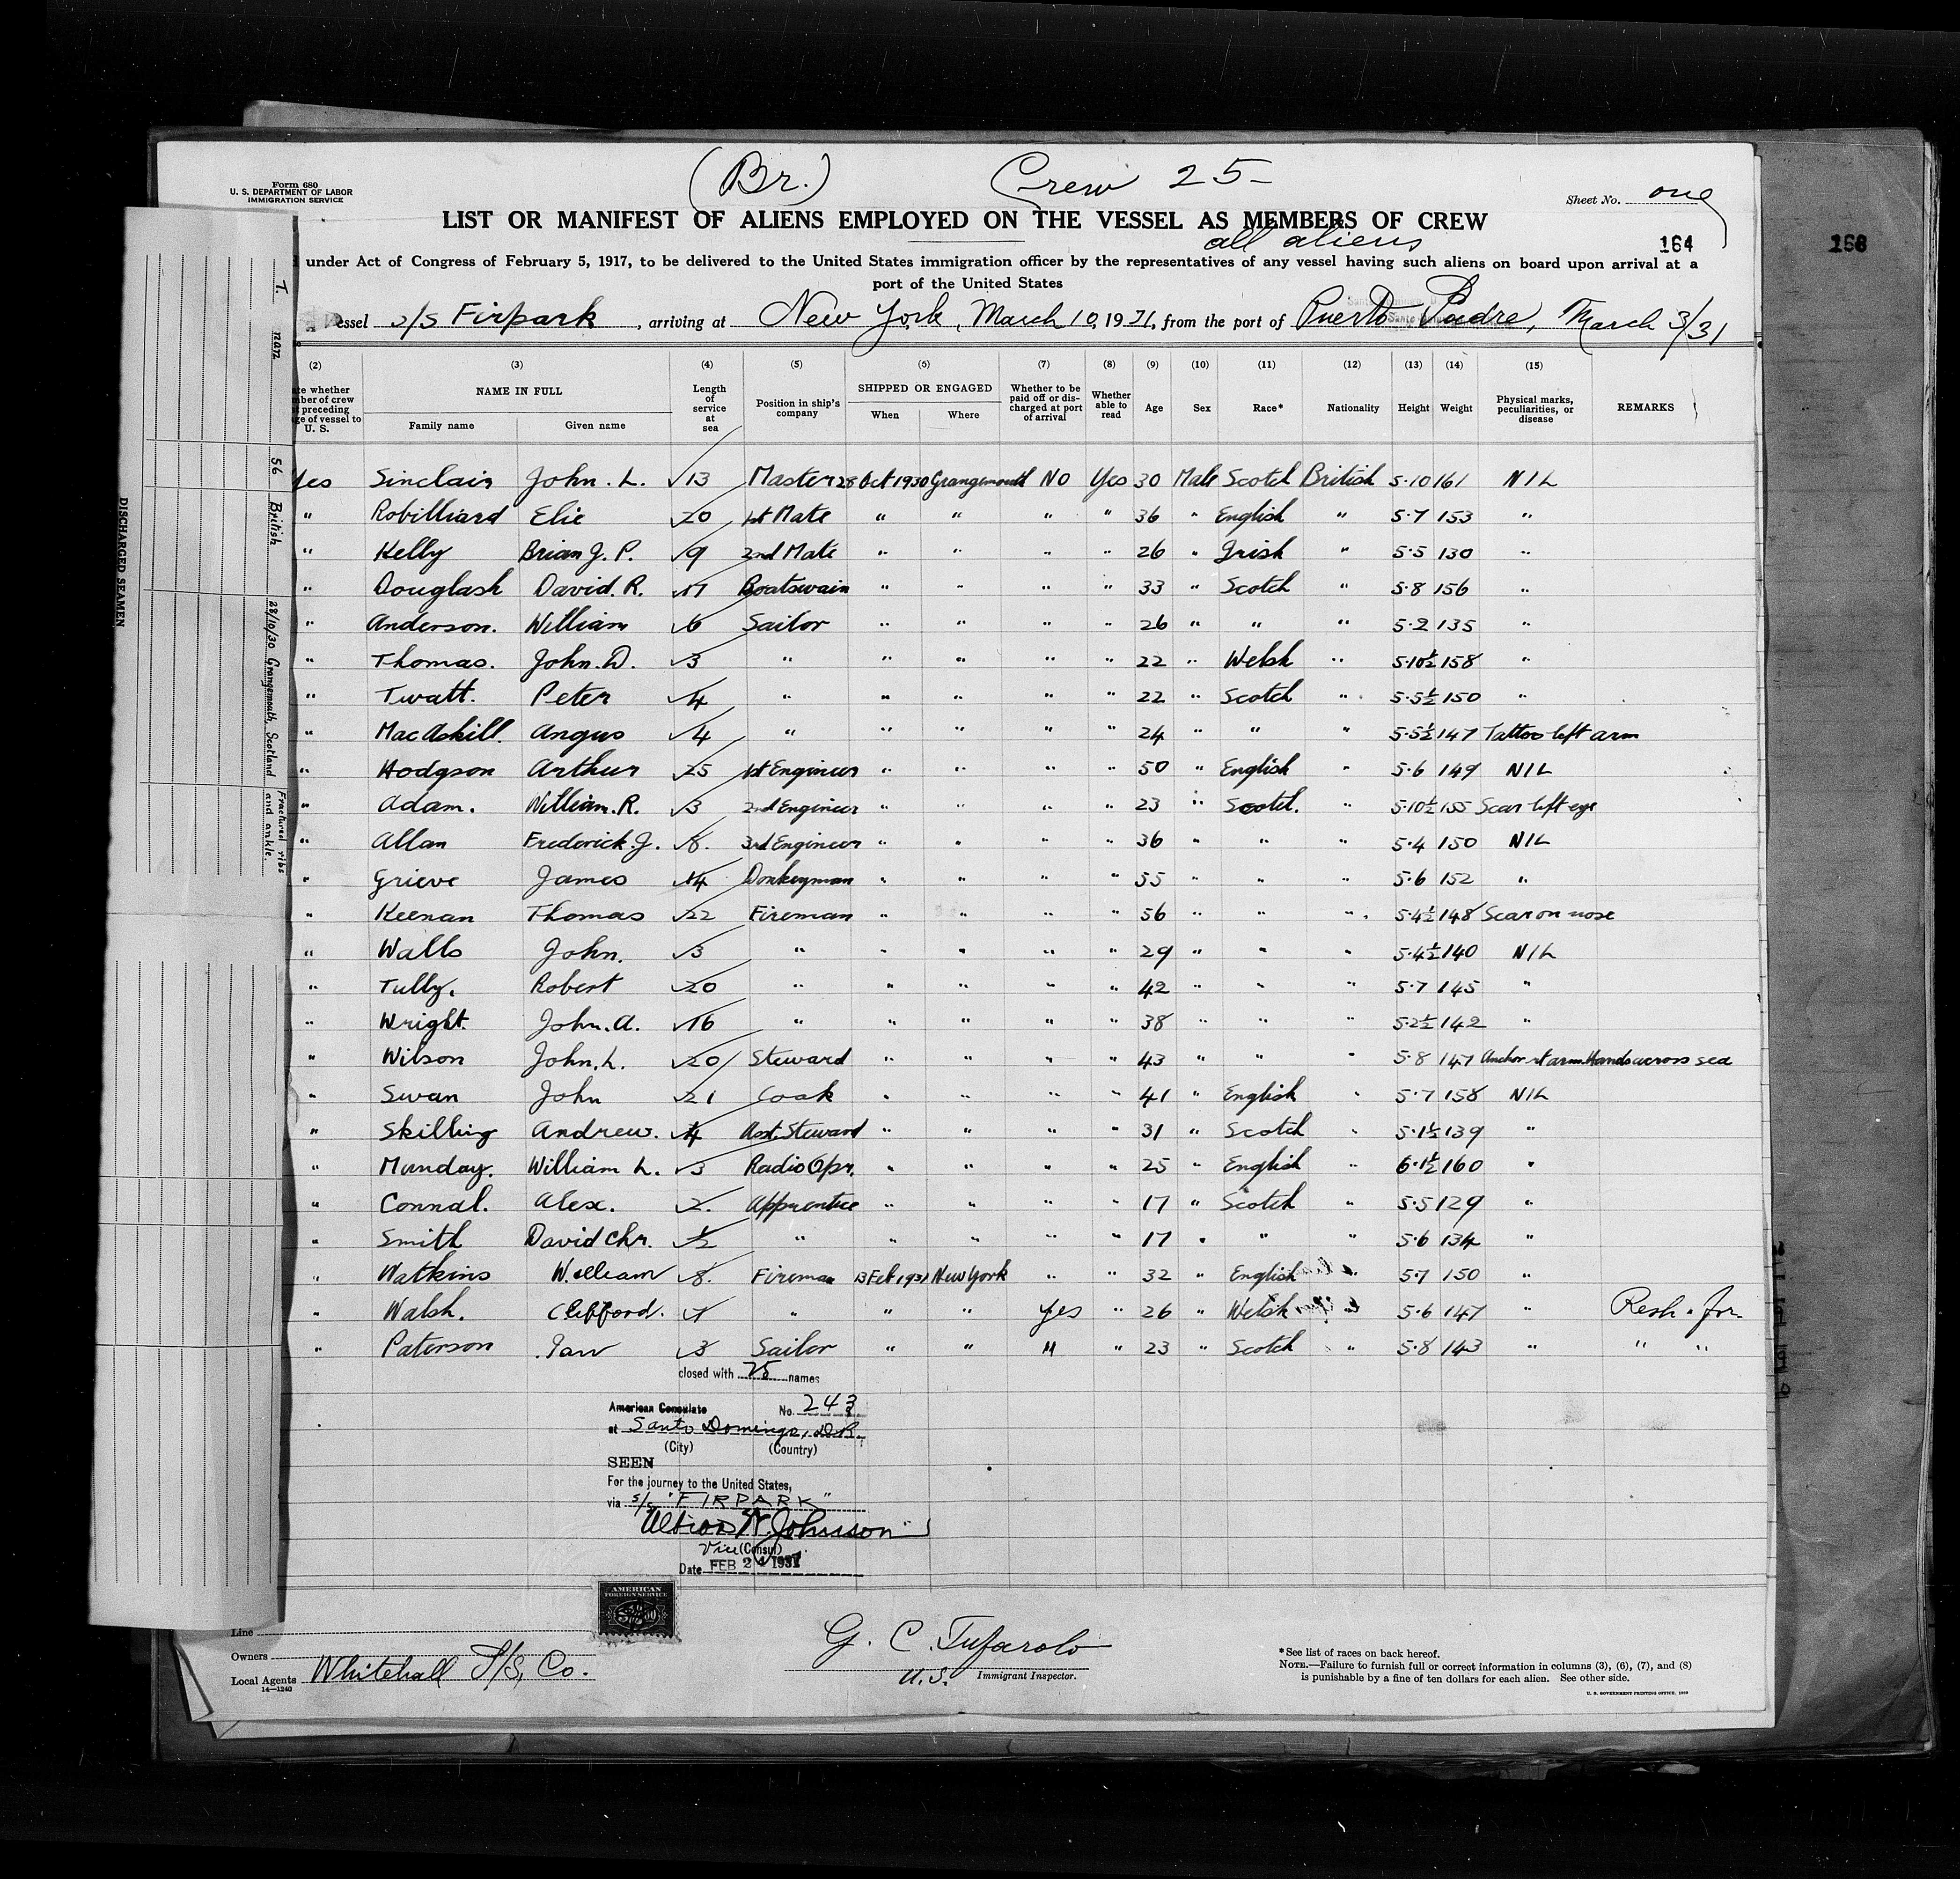 (Br.) Crew 25-
Form 680
U. S. DEPARTMENT OF LABOR
IMMIGRATION SERVICE
Sheet No. one
LIST OR MANIFEST OF ALIENS EMPLOYED ON THE VESSEL AS MEMBERS OF CREW
all aliens
164
168
under Act of Congress of February 5, 1917, to be delivered to the United States immigration officer by the representatives of any vessel having such aliens on board upon arrival at a
port of the United States
Vessel s/s Firpark, arriving at New York, March 10, 1931, from the port of Puerto Padre, March 3/31
(2) (3) (4) (5) (6) (7) (8) (9) (10) (11) (12) (13) (14) (15)
NAME IN FULL
Family name Given name
Length of service at sea
Position in ship's company
SHIPPED OR ENGAGED
When Where
Whether to be paid off or discharged at port of arrival
Whether able to read
Age Sex Race* Nationality Height Weight
Physical marks, peculiarities, or disease
REMARKS
Yes Sinclair John. L. 13 Master 28 Oct 1930 Grangemouth NO Yes 30 Male Scotch British 5·10 161 NIL
" Robilliard Elie 20 1st Mate " " " " 36 " English " 5·7 153 "
" Kelly Brian J. P. 9 2nd Mate " " " " 26 " Irish " 5·5 130 "
" Douglash David. R. 17 Boatswain " " " " 33 " Scotch " 5·8 156 "
" Anderson. William 6 Sailor " " " " 26 " " " 5·2 135 "
" Thomas. John. D. 3 " " " " " 22 " Welsh " 5·10½ 158 "
" Twatt. Peter 4 " " " " " 22 " Scotch " 5·5½ 150 "
" MacAskill. Angus 4 " " " " " 24 " " " 5·5½ 147 Tattoo left arm
" Hodgson Arthur 25 1st Engineer " " " " 50 " English " 5·6 149 NIL
" Adam. William. R. 3 2nd Engineer " " " " 23 " Scotch. " 5·10½ 155 Scar left eye
" Allan Frederick. J. 8. 3rd Engineer " " " " 36 " " " 5·4 150 NIL
" Grieve James 14 Donkeyman " " " " 55 " " " 5·6 152 "
" Keenan Thomas 22 Fireman " " " " 56 " " " 5·4½ 148 Scar on nose
" Walls John. 3 " " " " " 29 " " " 5·4½ 140 NIL
" Tully. Robert 20 " " " " " 42 " " " 5·7 145 "
" Wright. John. A. 16 " " " " " 38 " " " 5·2½ 142 "
" Wilson John. L. 20 Steward " " " " 43 " " " 5·8 147 Anchor rt arm. Hands across sea
" Swan John 21 Cook " " " " 41 " English " 5·7 158 NIL
" Skilling Andrew. 4 Asst. Steward " " " " 31 " Scotch " 5·1½ 139 "
" Munday. William L. 3 Radio Opr. " " " " 25 " English " 6·1½ 160 "
" Connal. Alex. 2. Apprentice " " " " 17 " Scotch " 5·5 129 "
" Smith David Chr. ½ " " " " " 17 " " " 5·6 134 "
" Watkins William 8. Fireman 13 Feb 1931 New York " " 32 " English " 5·7 150 "
" Walsh. Clifford. " " " Yes " 26 " Welsh " 5·6 147 "
" Paterson Ian 3 Sailor " " " " 23 " Scotch " 5·8 143 " " "
closed with 25 names
American Consulate No. 243
at Santo Domingo, D.R.
(City) (Country)
SEEN
For the journey to the United States,
via s/s "FIRPARK"
Johnson
Vice (Consul)
Date FEB 24 1931
AMERICAN
FOREIGN SERVICE
Line
Owners
Local Agents Whitehall S/S, Co.
14—1240
G. C. Tufarolo
U.S. Immigrant Inspector.
*See list of races on back hereof.
NOTE.—Failure to furnish full or correct information in columns (3), (6), (7), and (8)
is punishable by a fine of ten dollars for each alien. See other side.
U. S. GOVERNMENT PRINTING OFFICE
DISCHARGED SEAMEN
T. man 56 British 28/10/30 Grangemouth, Scotland Fractured ribs
and ankle.